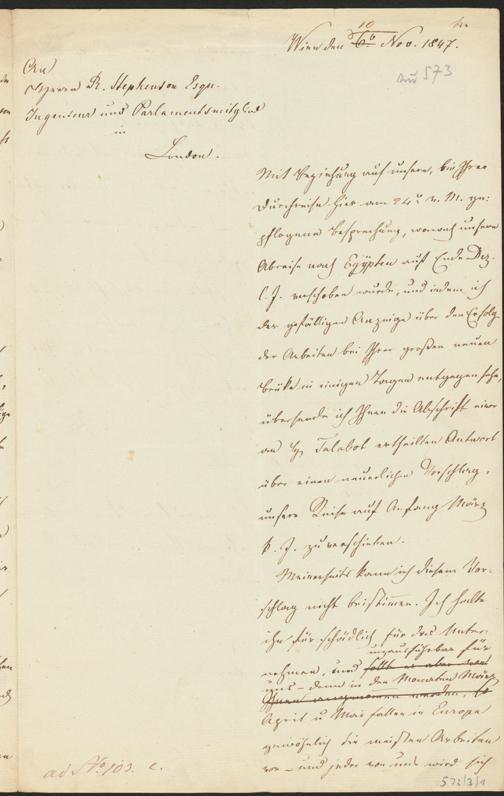 10 br
Wien den 6. Nov. 1847.
ad 573
An
Herrn R. Stephenson Esqu.
Ingenieur und Parlamentsmitglied
in
London.
Mit Beziehung auf unsere, bei Ihrer
Durchreise hier am 24. v. M. ge-
pflogene Besprechung, wonach unsere
Abreise nach Egÿpten auf Ende Dez.
l. J. verschoben wurde, und indem ich
der gefälligen Anzeige über den Erfolg
der Arbeiten bei Ihrer großen neuen
Brüke in einigen Tagen entgegen sehe,
übersende ich Ihnen die Abschrift einer
an H. Talabot ertheilten Antwort
über einen neuerlichen Vorschlag,
unsere Reise auf Anfang März
k. J. zu verschieben.
Meinerseits kann ich diesem Vor-
schlag nicht beistimmen. Ich halte
ihn für schädlich für das Unter-
unausführbar für
nehmen, und sollte es aber von
uns – denn in den Monaten März
Ihnen angenommen werden, so
April u Mai fallen in Europa
gewöhnlich die meisten Arbeiten
vor – und jeder von uns wird sich
ad No 103. c.
573/3/1